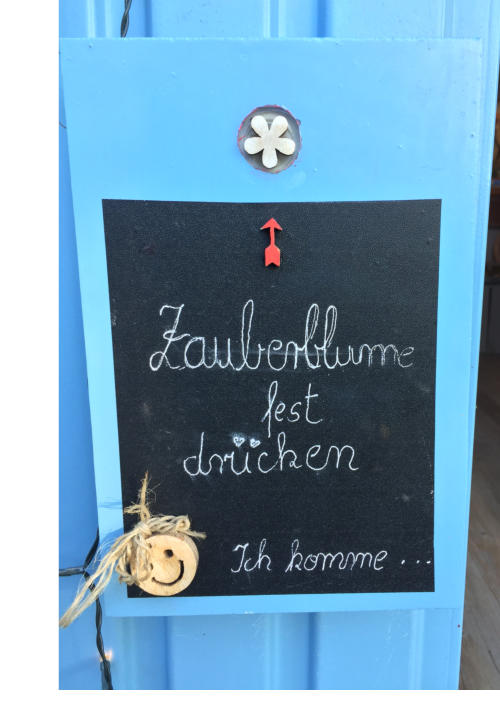 Zauberblume
fest
drücken
Ich komme ...